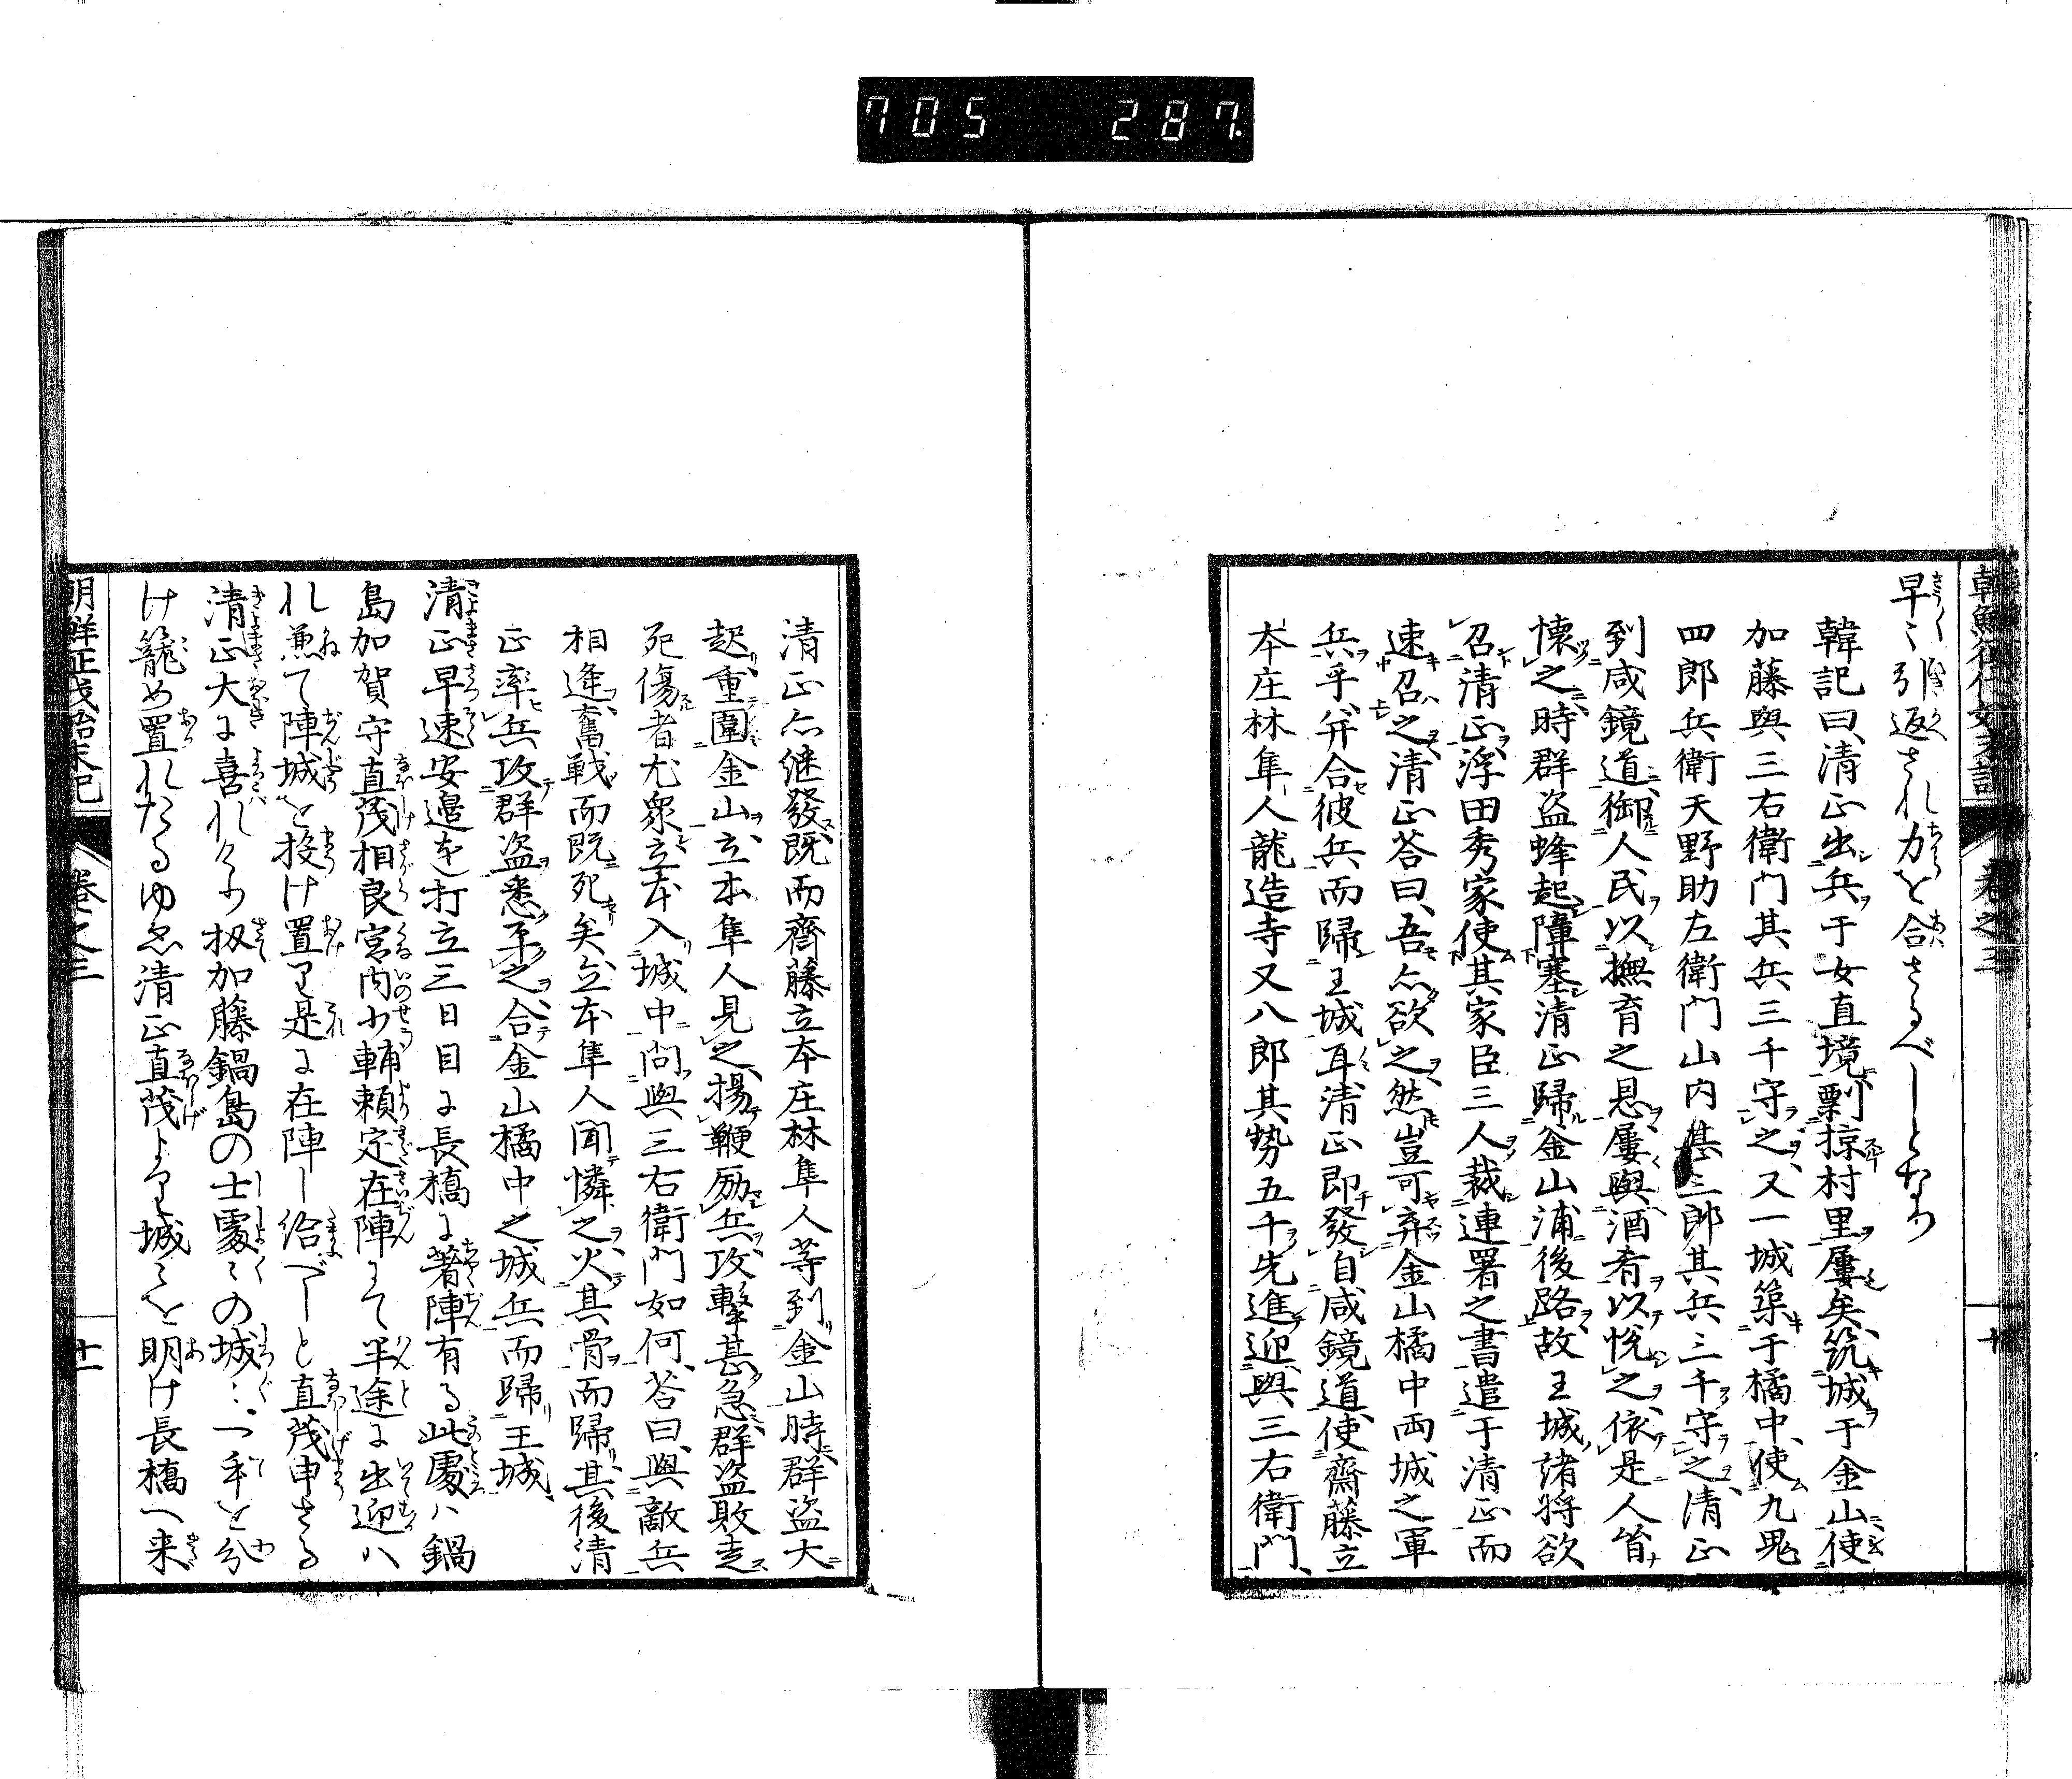 705 287
朝鮮征伐始末記 巻之三 十
早々引返され力を合さるべしとなり
韓記曰清正出兵于女直境剽掠村里屢矣筑城于金山使
加藤與三右衛門其兵三千守之又一城築于橘中使九鬼
四郎兵衛天野助左衛門山内甚三郎其兵三千守之清正
到咸鏡道御人民以撫育之恩屢與酒肴以悦之依是人皆
懐之時群盗蜂起障塞清正歸金山浦後路故王城諸将欲
召清正浮田秀家使其家臣三人裁連署之書遣于清正而
速召之清正荅曰吾亦欲之然豈可棄金山橘中両城之軍
兵乎并合彼兵而歸王城耳清正即發自咸鏡道使齋藤立
本庄林隼人龍造寺又八郎其勢五千先進迎與三右衛門
清正亦継發既而齋藤立本庄林隼人等到金山時群盗大
起重圍金山立本隼人見之揚鞭励兵攻撃甚急群盗敗走
死傷者尤衆立本入城中問與三右衛門如何荅曰與敵兵
相逢奮戦而既死矣立本隼人聞憐之火其骨而歸其後清
正率兵攻群盗悉平之合金山橘中之城兵而歸王城
清正早速安邉を打立三日目に長橋に著陣有る此處ハ鍋
島加賀守直茂相良宮内少輔頼定在陣にて半途に出迎ハ
れ兼て陣城を投け置り是に在陣し給べしと直茂申さる
清正大に喜れけり扨加藤鍋島の士處々の城々一手を分
け籠め置れたるゆゑ清正直茂より城々を明け長橋へ来
朝鮮征伐始末記 巻之三 十一